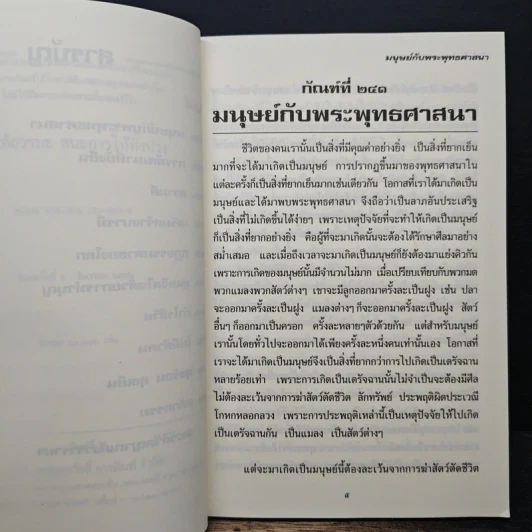 สารบัญ
มนุษย์กับพระพุทธศาสนา
กัณฑ์ที่ ๒๔๑
มนุษย์กับพระพุทธศาสนา
ชีวิตของคนเรานั้นเป็นสิ่งที่มีคุณค่าอย่างยิ่ง เป็นสิ่งที่ยากเย็น
มากที่จะได้มาเกิดเป็นมนุษย์ การปรากฏขึ้นมาของพุทธศาสนาใน
แต่ละครั้งก็เป็นสิ่งที่ยากเย็นมากเช่นเดียวกัน โอกาสที่เราได้มาเกิดเป็น
มนุษย์และได้มาพบพระพุทธศาสนา จึงถือว่าเป็นลาภอันประเสริฐ
เป็นสิ่งที่ไม่เกิดขึ้นได้ง่ายๆ เพราะเหตุปัจจัยที่จะทำให้เกิดเป็นมนุษย์
ก็เป็นสิ่งที่ยากอย่างยิ่ง คือผู้ที่จะมาเกิดนั้นจะต้องได้รักษาศีลมาอย่าง
สม่ำเสมอ และเมื่อถึงเวลาจะมาเกิดเป็นมนุษย์ก็ยังต้องมาแย่งคิวกัน
เพราะการเกิดของมนุษย์นั้นมีจำนวนไม่มาก เมื่อเปรียบเทียบกับพวกมด
พวกแมลงพวกสัตว์ต่างๆ เขาจะมีลูกออกมาครั้งละเป็นฝูง เช่น ปลา
จะออกมาครั้งละเป็นฝูง แมลงต่างๆ ก็จะออกมาครั้งละเป็นฝูง สัตว์
อื่นๆ ก็ออกมาเป็นครอก ครั้งละหลายๆ ตัวด้วยกัน แต่สำหรับมนุษย์
เรานั้นโดยทั่วไปจะออกมาได้เพียงครั้งละหนึ่งคนเท่านั้นเอง โอกาสที่
เราจะได้มาเกิดเป็นมนุษย์จึงเป็นสิ่งที่ยากกว่าการไปเกิดเป็นเดรัจฉาน
หลายร้อยเท่า เพราะการเกิดเป็นเดรัจฉานนั้นไม่จำเป็นจะต้องมีศีล
ไม่ต้องละเว้นจากการฆ่าสัตว์ตัดชีวิต ลักทรัพย์ ประพฤติผิดประเวณี
โกหกหลอกลวง เพราะการประพฤติเหล่านี้เป็นเหตุปัจจัยให้ไปเกิด
เป็นเดรัจฉานกัน เป็นแมลง เป็นสัตว์ต่างๆ
แต่จะมาเกิดเป็นมนุษย์นี้ต้องละเว้นจากการฆ่าสัตว์ตัดชีวิต
๕